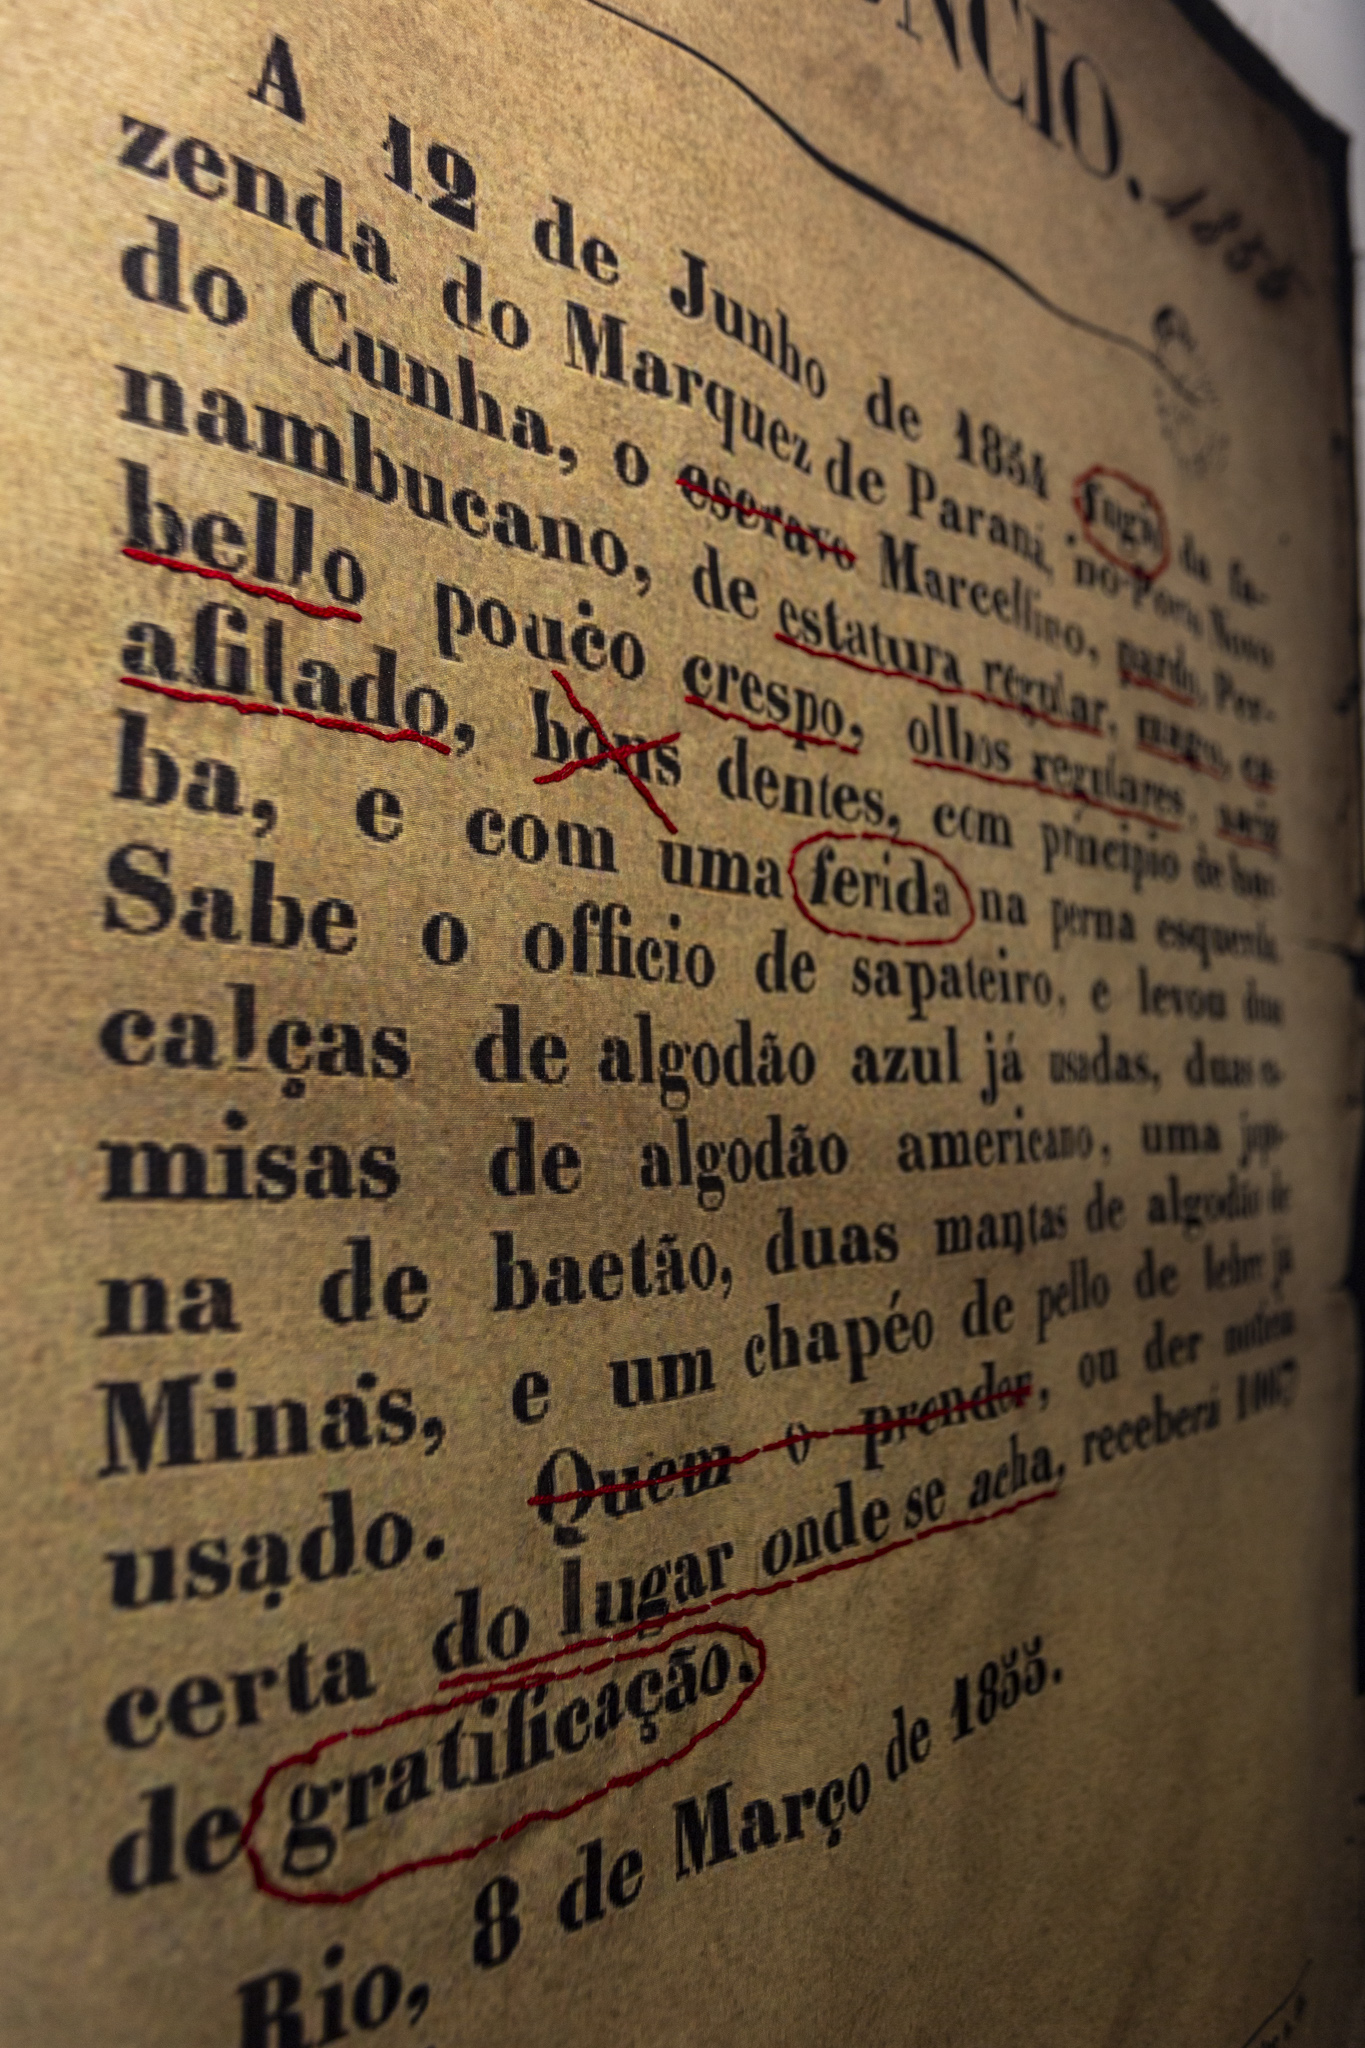 NCIO. 1855
A 12 de Junho de 1854 fugio da fa-
zenda do Marquez de Paraná, no Porto Novo
do Cunha, o escravo Marcellino, pardo, Per-
nambucano, de estatura regular, magro, ca-
bello pouco crespo, olhos regulares, nariz
afilado, bons dentes, com principio de bar-
ba, e com uma ferida na perna esquerda.
Sabe o officio de sapateiro, e levou duas
calças de algodão azul já usadas, duas ca-
misas de algodão americano, uma japo-
na de baetão, duas mantas de algodão de
Minas, e um chapéo de pello de lebre já
usado. Quem o prender, ou der noticia
certa do lugar onde se acha, receberá
de gratificação.
Rio, 8 de Março de 1855.